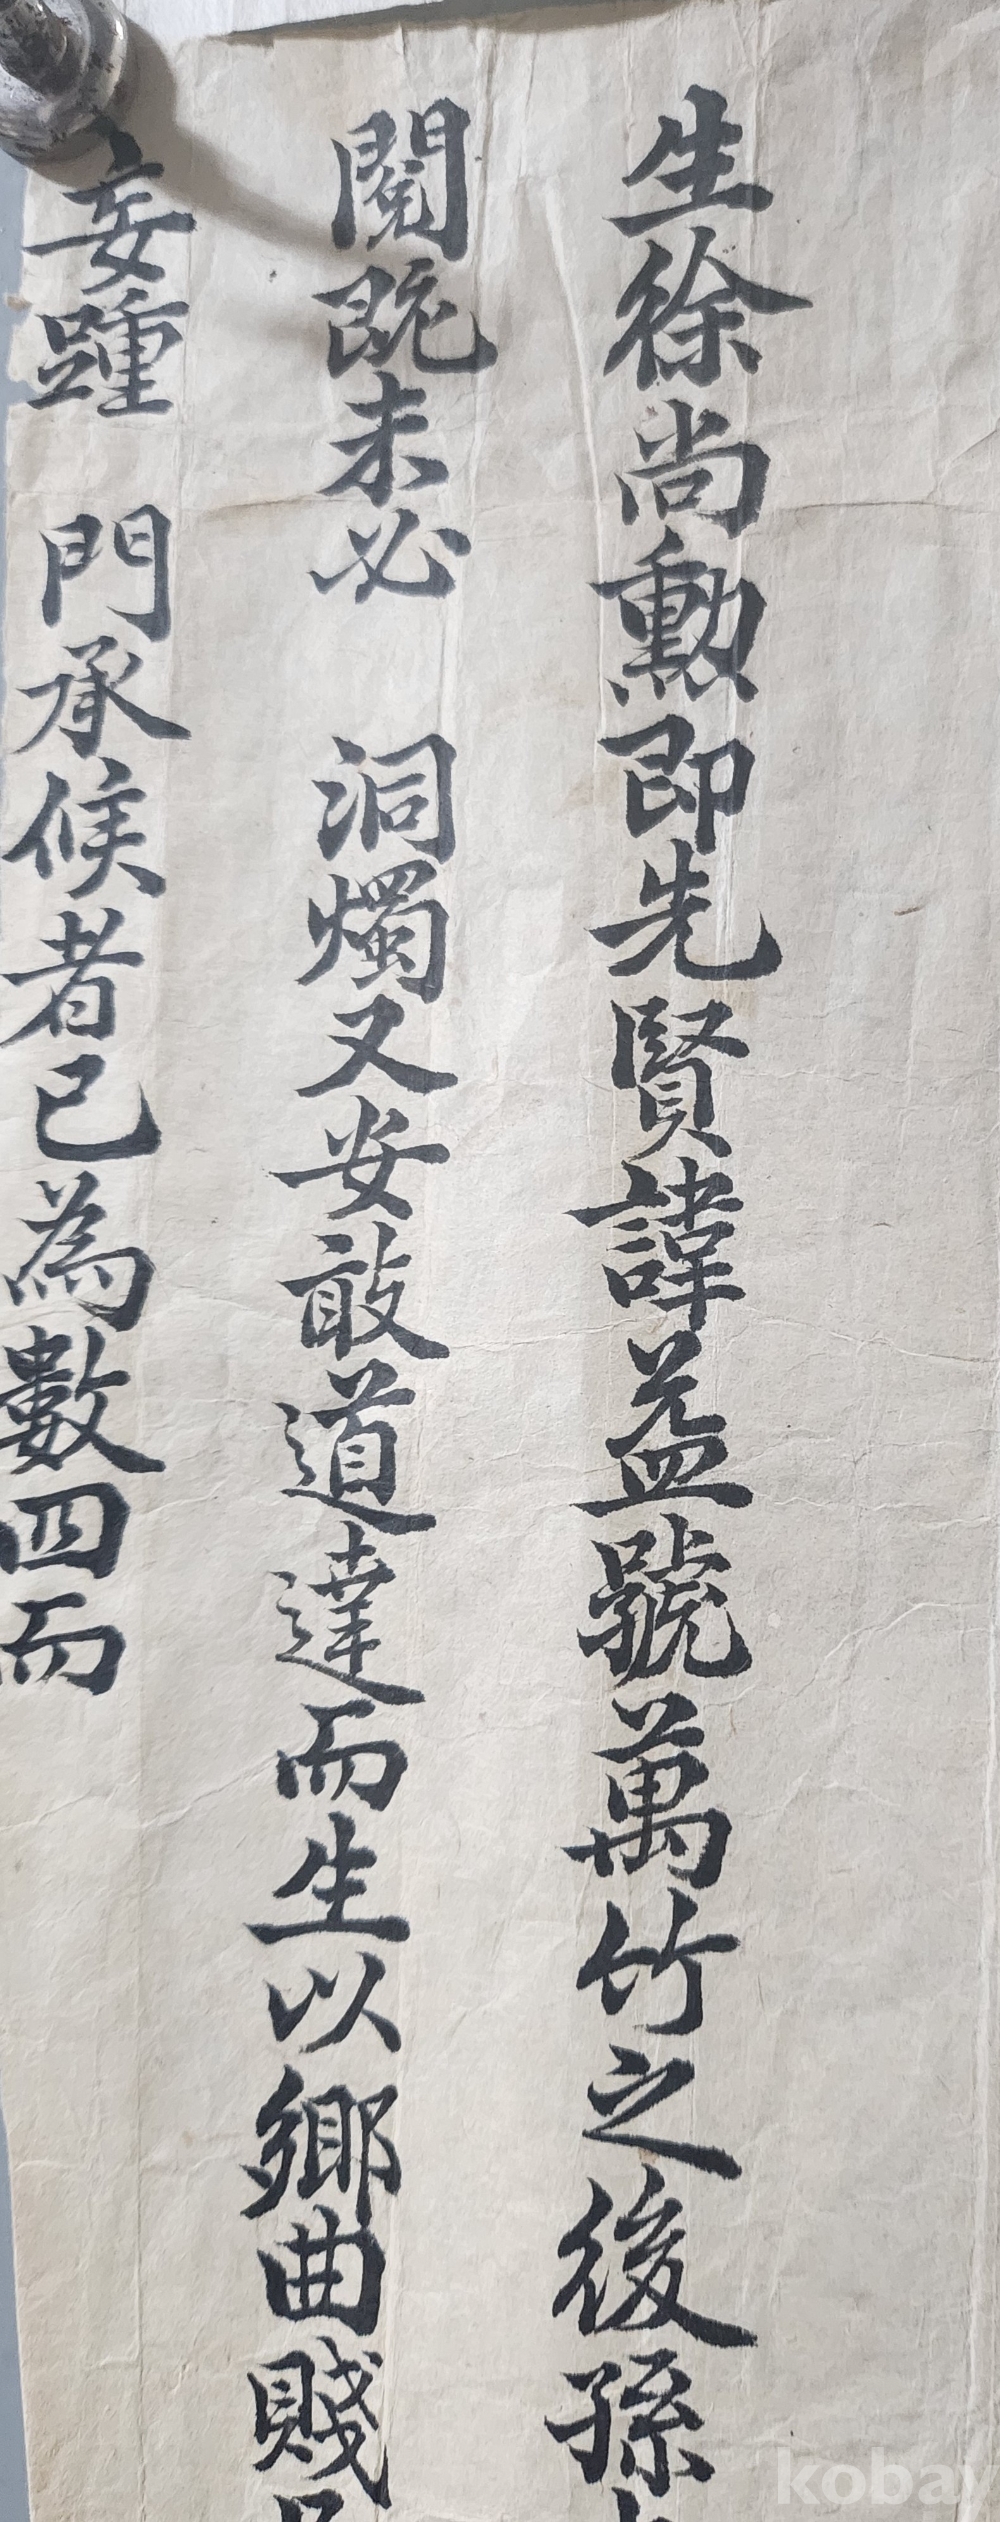 生徐尚勲即先賢諱益號萬竹之後孫
閱既未必 洞燭又安敢道達而生以鄉曲賤
妄踵 門承候者已為數四而
kobay